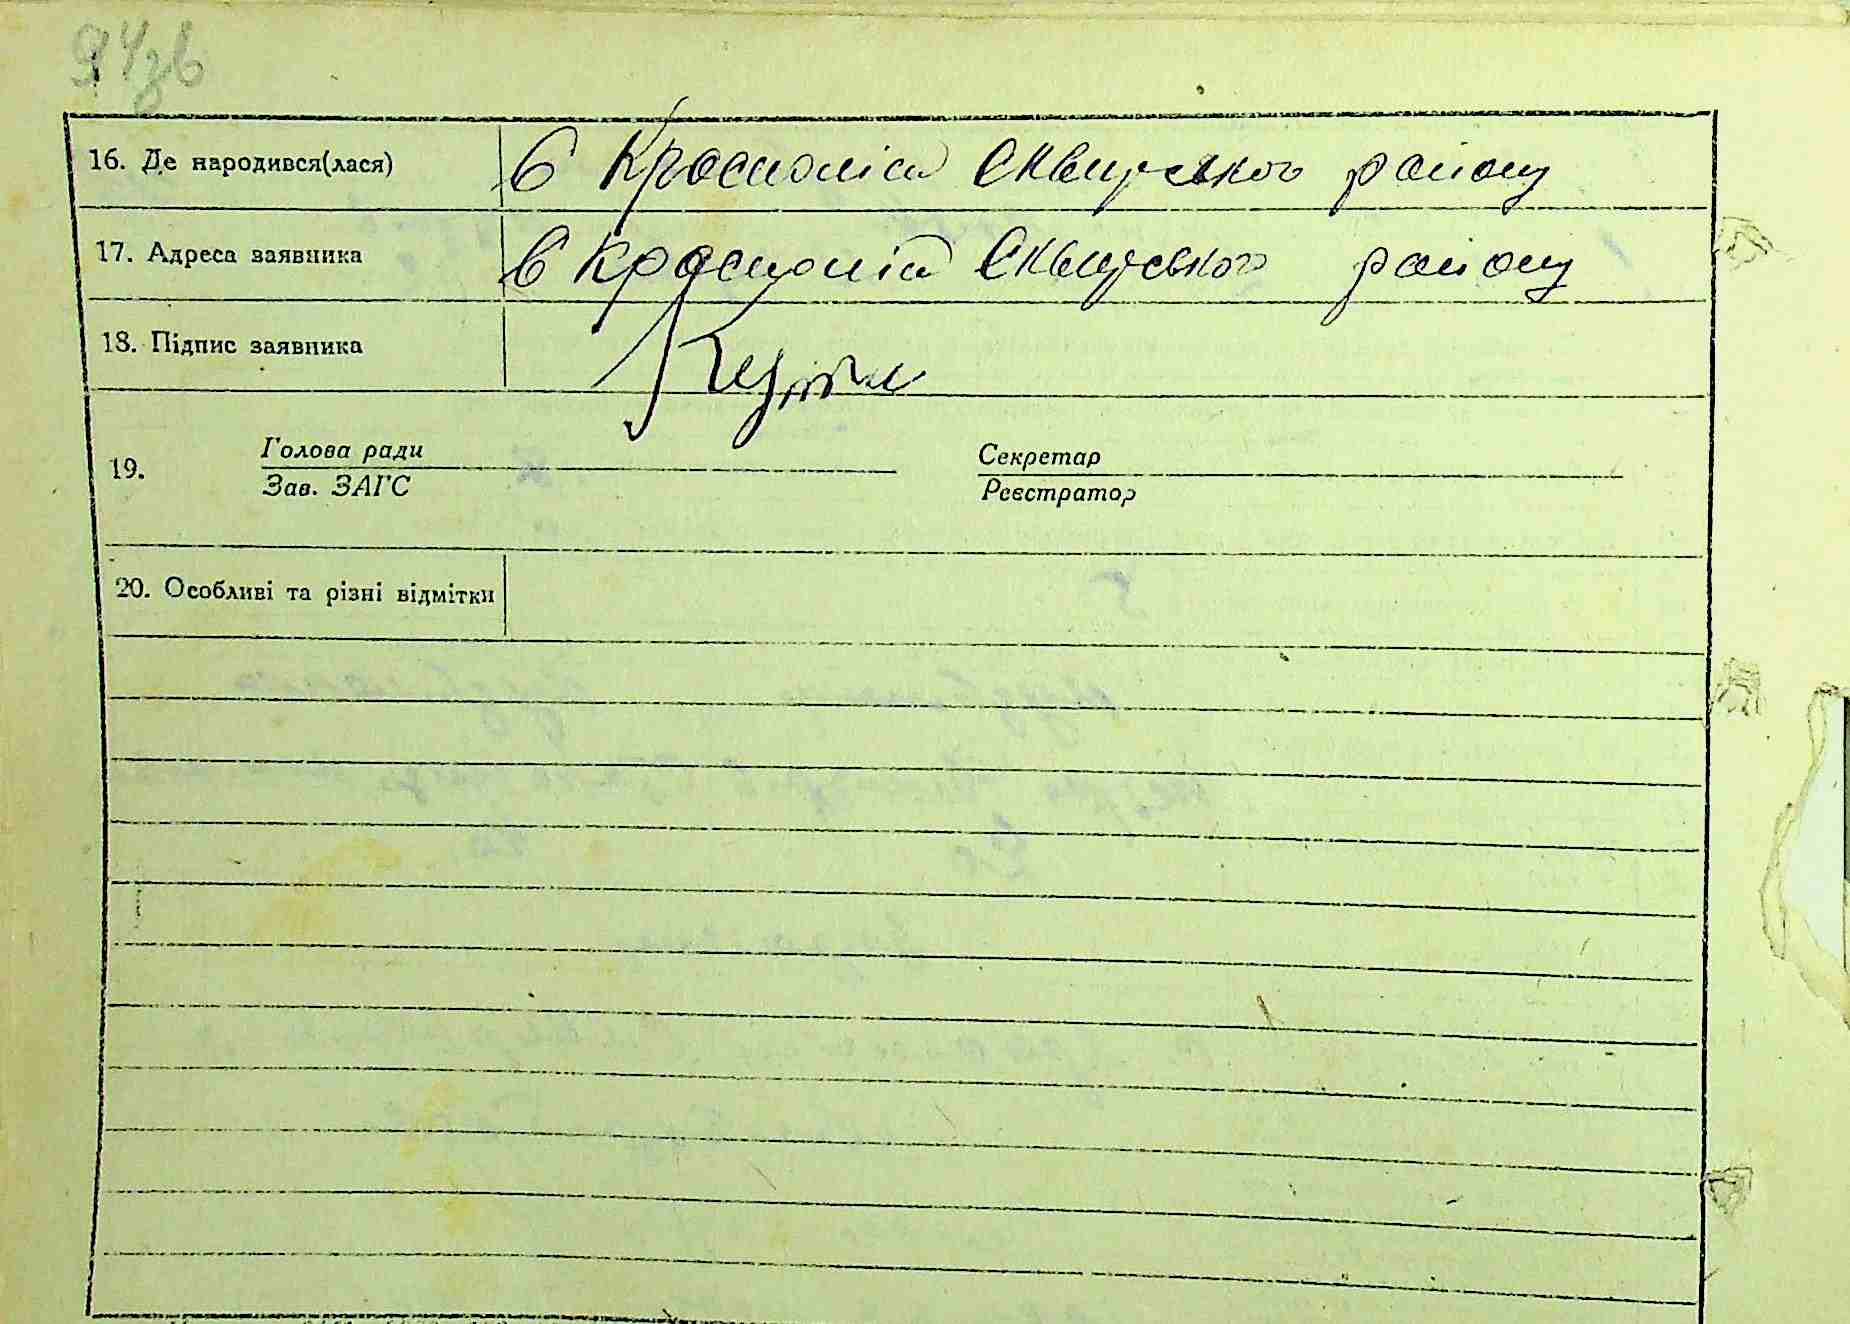 94зв
16. Де народився(лася) в Красноліси Сквирського району
17. Адреса заявника в Красноліси Сквирського району
18. Підпис заявника
19. Голова ради Секретар
Зав. ЗАГС Реєстратор
20. Особливі та різні відмітки